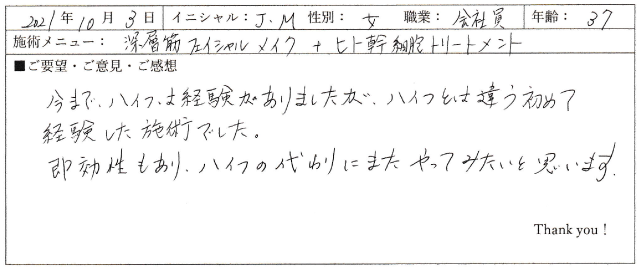 2021年 10月 3日 イニシャル：J.M 性別：女 職業：会社員 年齢：37
施術メニュー：深層筋フェイシャルメイク + ヒト幹細胞トリートメント
■ご要望・ご意見・ご感想
今まで、ハイフは経験がありましたが、ハイフとは違う初めて
経験した施術でした。
即効性もあり、ハイフの代わりにまたやってみたいと思います。
Thank you！